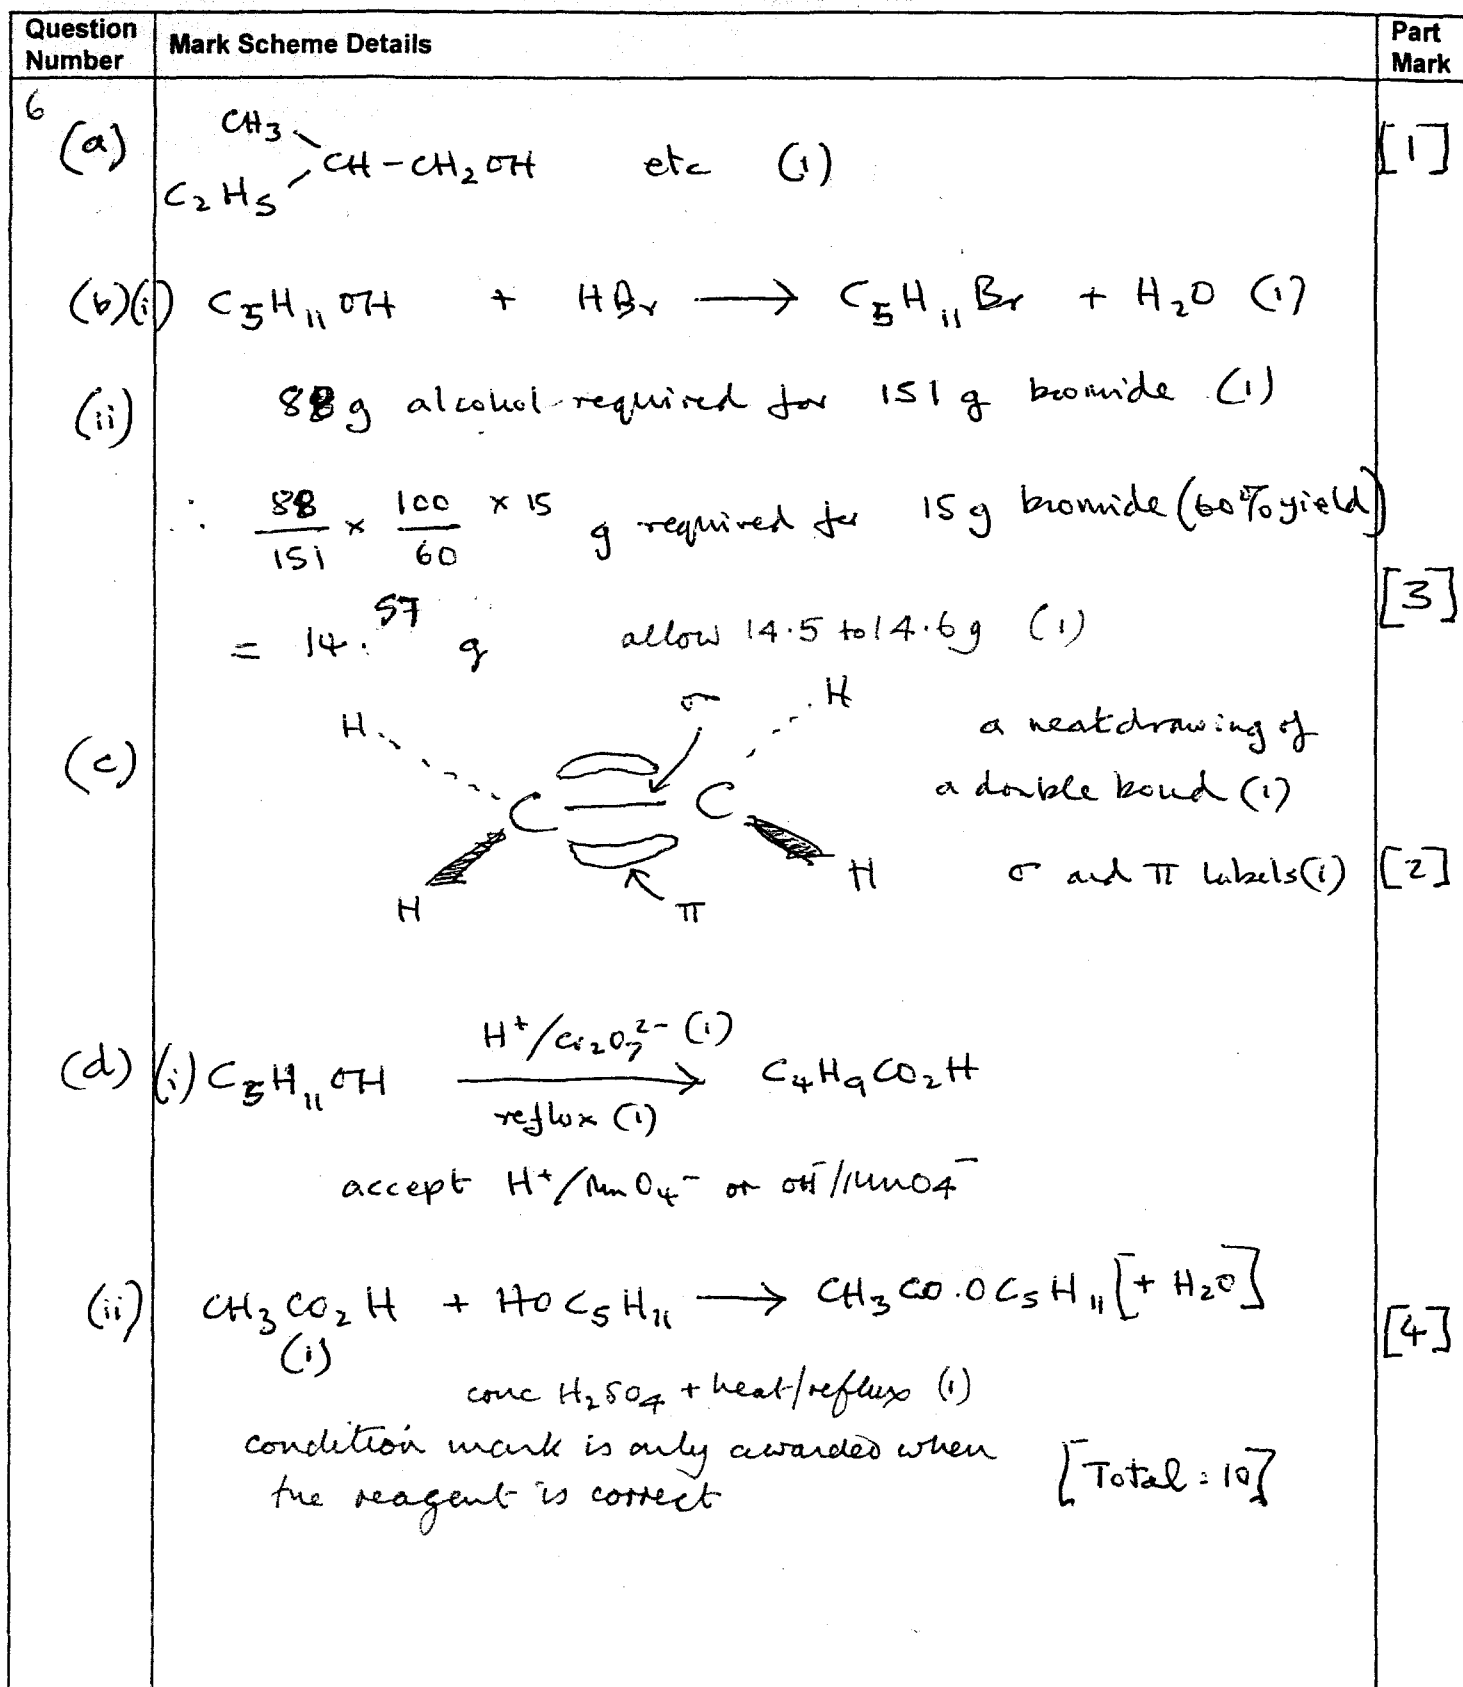 Question Number
Mark Scheme Details
Part Mark
6
(a)
CH3
CH-CH₂OH etc (1)
C₂H5
[1]
(b)(i) C5H₁₁OH + HBr → C5H₁₁Br + H₂O (1)
(ii) 88g alcohol required for 151g bromide (1)
∴ 88/151 × 100/60 × 15 g required for 15g bromide (60% yield)
[3]
= 14.57 g allow 14.5 to 14.6g (1)
(c)
H
σ
H
a neat drawing of
a double bond (1)
C C
H
H
π
σ and π labels (1) [2]
(d) (i) C5H₁₁OH H⁺/Cr₂O₇²⁻ (1) → C₄H₉CO₂H
reflux (1)
accept H⁺/MnO₄⁻ or OH⁻/MnO4⁻
(ii) CH₃CO₂H + HOC5H₁₁ → CH₃CO.OC5H₁₁ [+ H₂O]
(1)
[4]
conc H₂SO₄ + heat/reflux (1)
condition mark is only awarded when
the reagent is correct
[Total = 10]